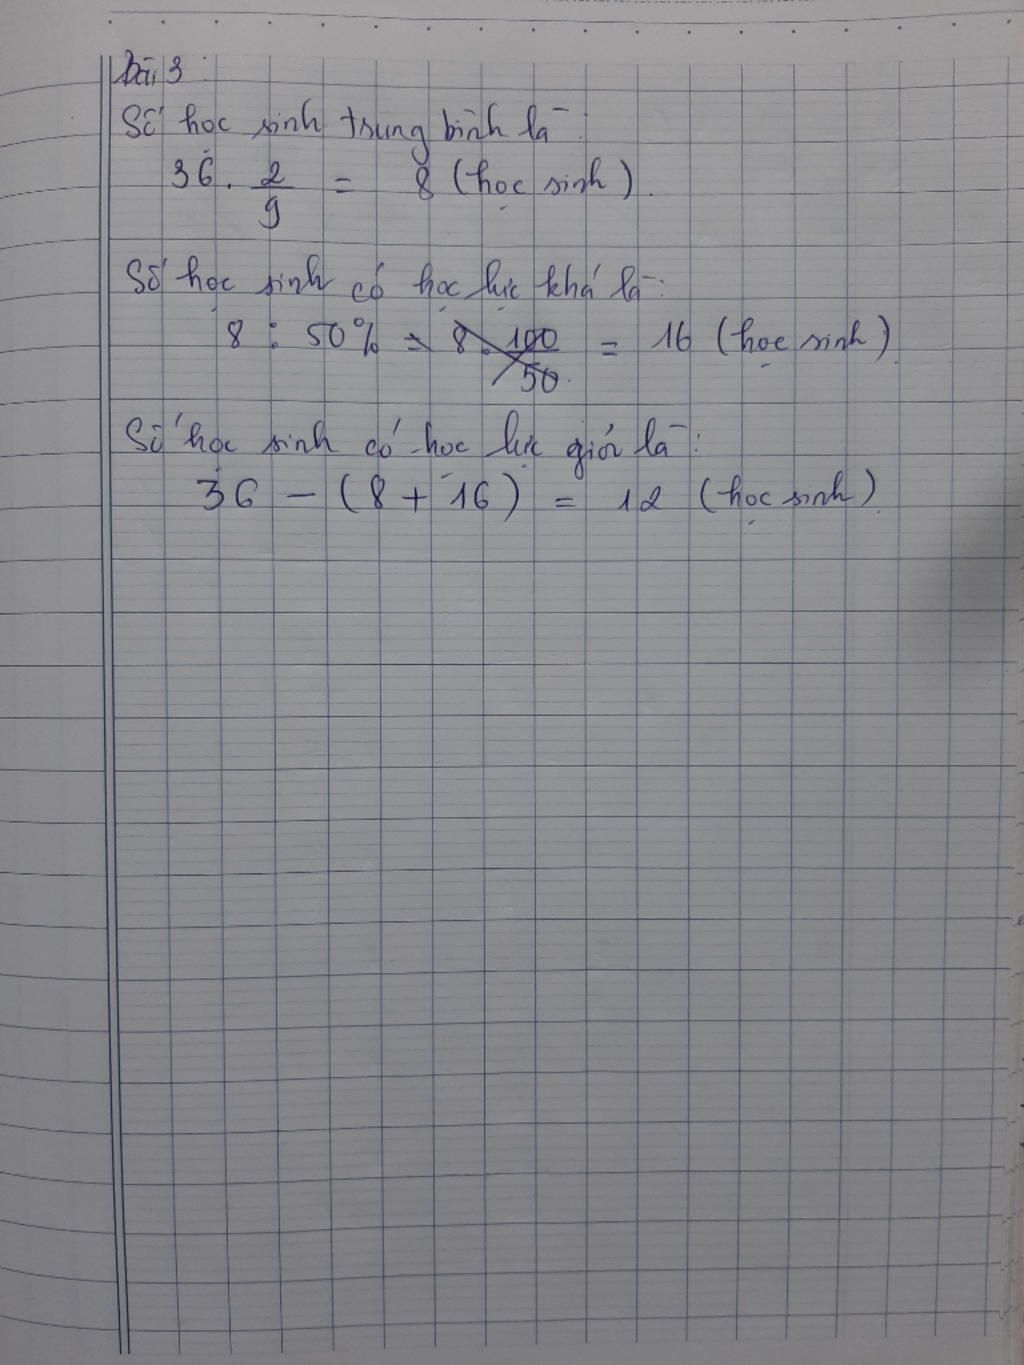 Bài 3
Số học sinh trung bình là:
36 . 2/9 = 8 (học sinh).
Số học sinh có học lực khá là:
8 : 50% = 8 . 100/50 = 16 (học sinh)
Số học sinh có học lực giỏi là:
36 - (8 + 16) = 12 (học sinh)